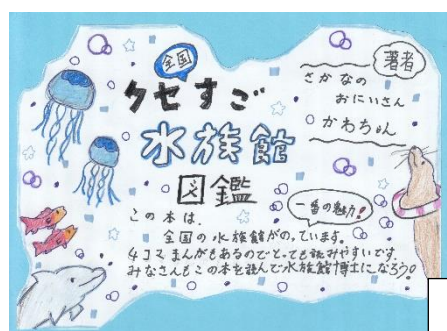 全国
クセすご
水族館
図鑑
著者
さかなの
おにいさん
かわちゃん
一番の魅力!
この本は、
全国の水族館がのっています。
4コマまんがもあるのでとっても読みやすいです
みなさんもこの本を読んで水族館博士になろう。